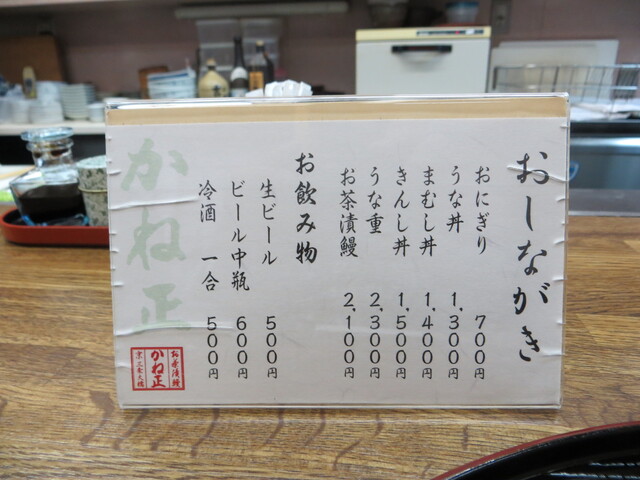 おしながき
おにぎり 700円
うな丼 1,300円
まむし丼 1,400円
きんし丼 1,500円
うな重 2,300円
お茶漬鰻 2,100円
お飲み物
生ビール 500円
ビール中瓶 600円
冷酒 一合 500円
かね正
お茶漬鰻
かね正
京・三条大橋